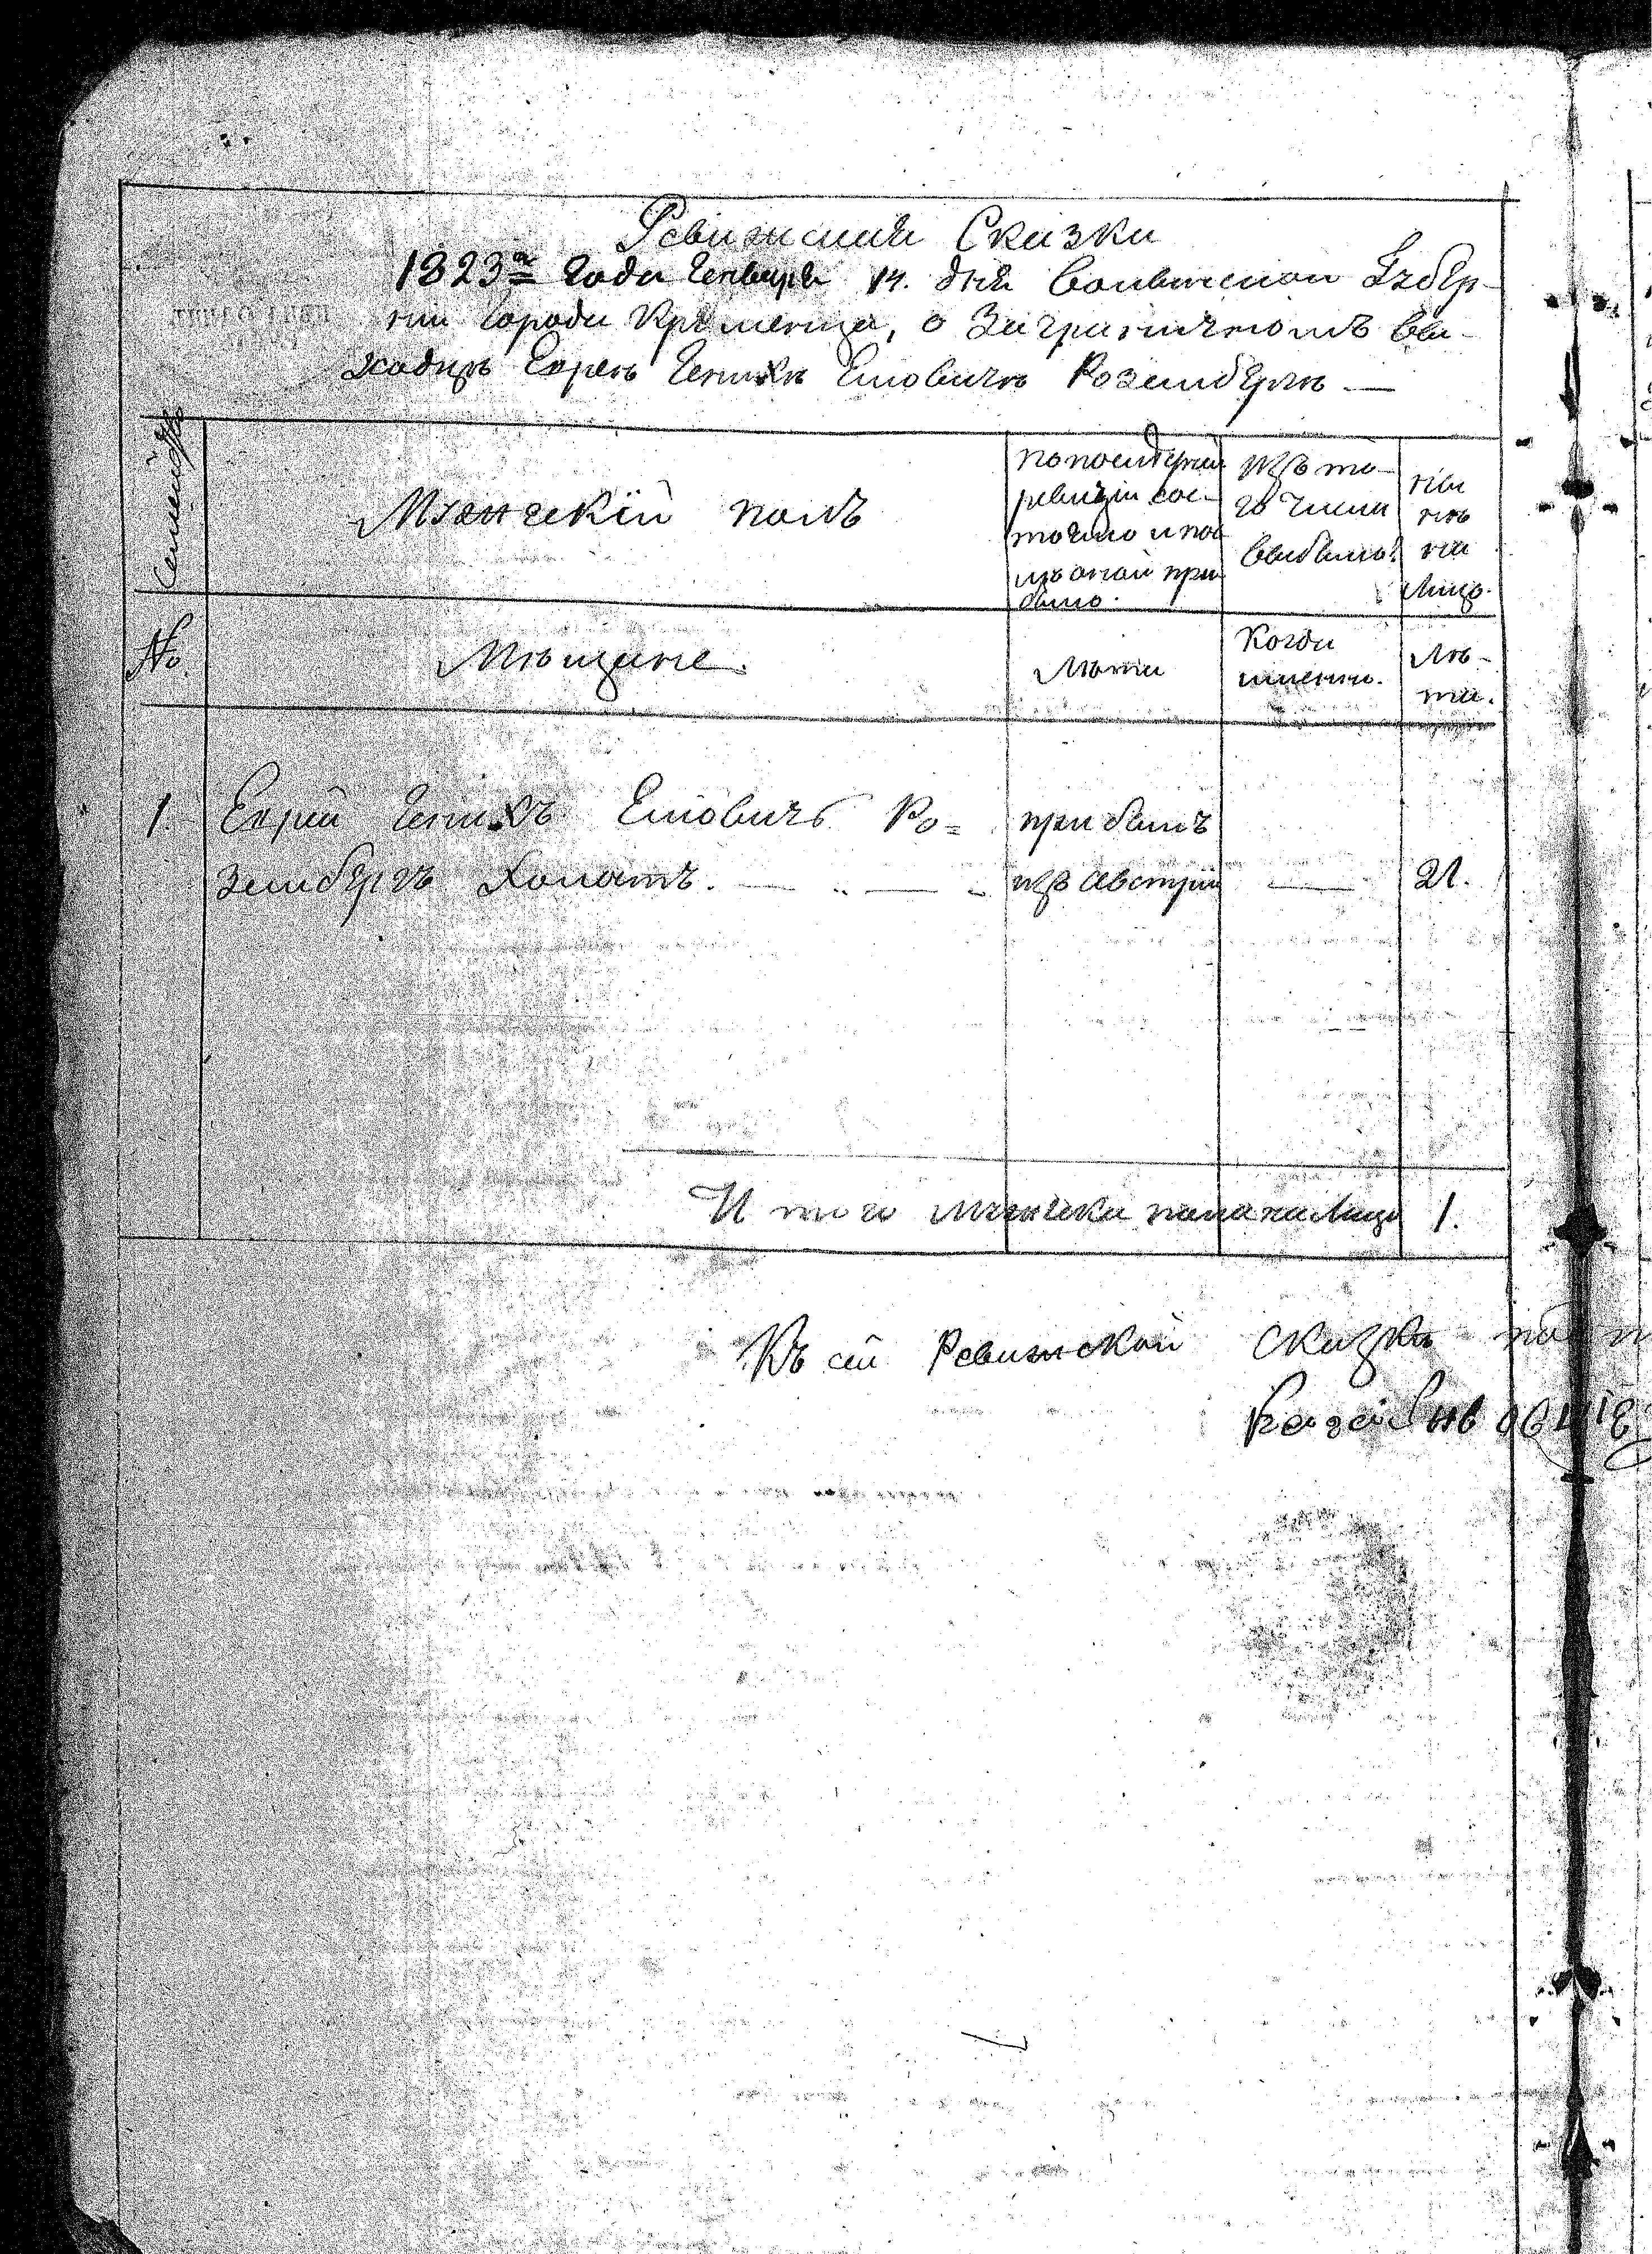 Ревижская Сказка
1823го Года Генваря 14. дня Волынской Губер-
нии Города Кременца, о Заграничномъ вы-
ходцѣ Евреѣ Генихѣ Елiовичѣ Розембергѣ —
Семейство
Мужескій полъ
По последней
ревизіи сос-
тояло и по
слѣ оной при
было.
Изъ то-
го числа
выбыло.
ны
нѣ
на
Лицо.
№
Мѣщане.
Лѣта
Когда
именно.
Лѣ-
та.
1. Еврей Генихъ Еліовичъ Ро=
прибылъ
зембергъ Холостъ.
изъ Австріи
21.
И того мужеска пола на Лицо 1.
Къ сей Ревижской сказкѣ